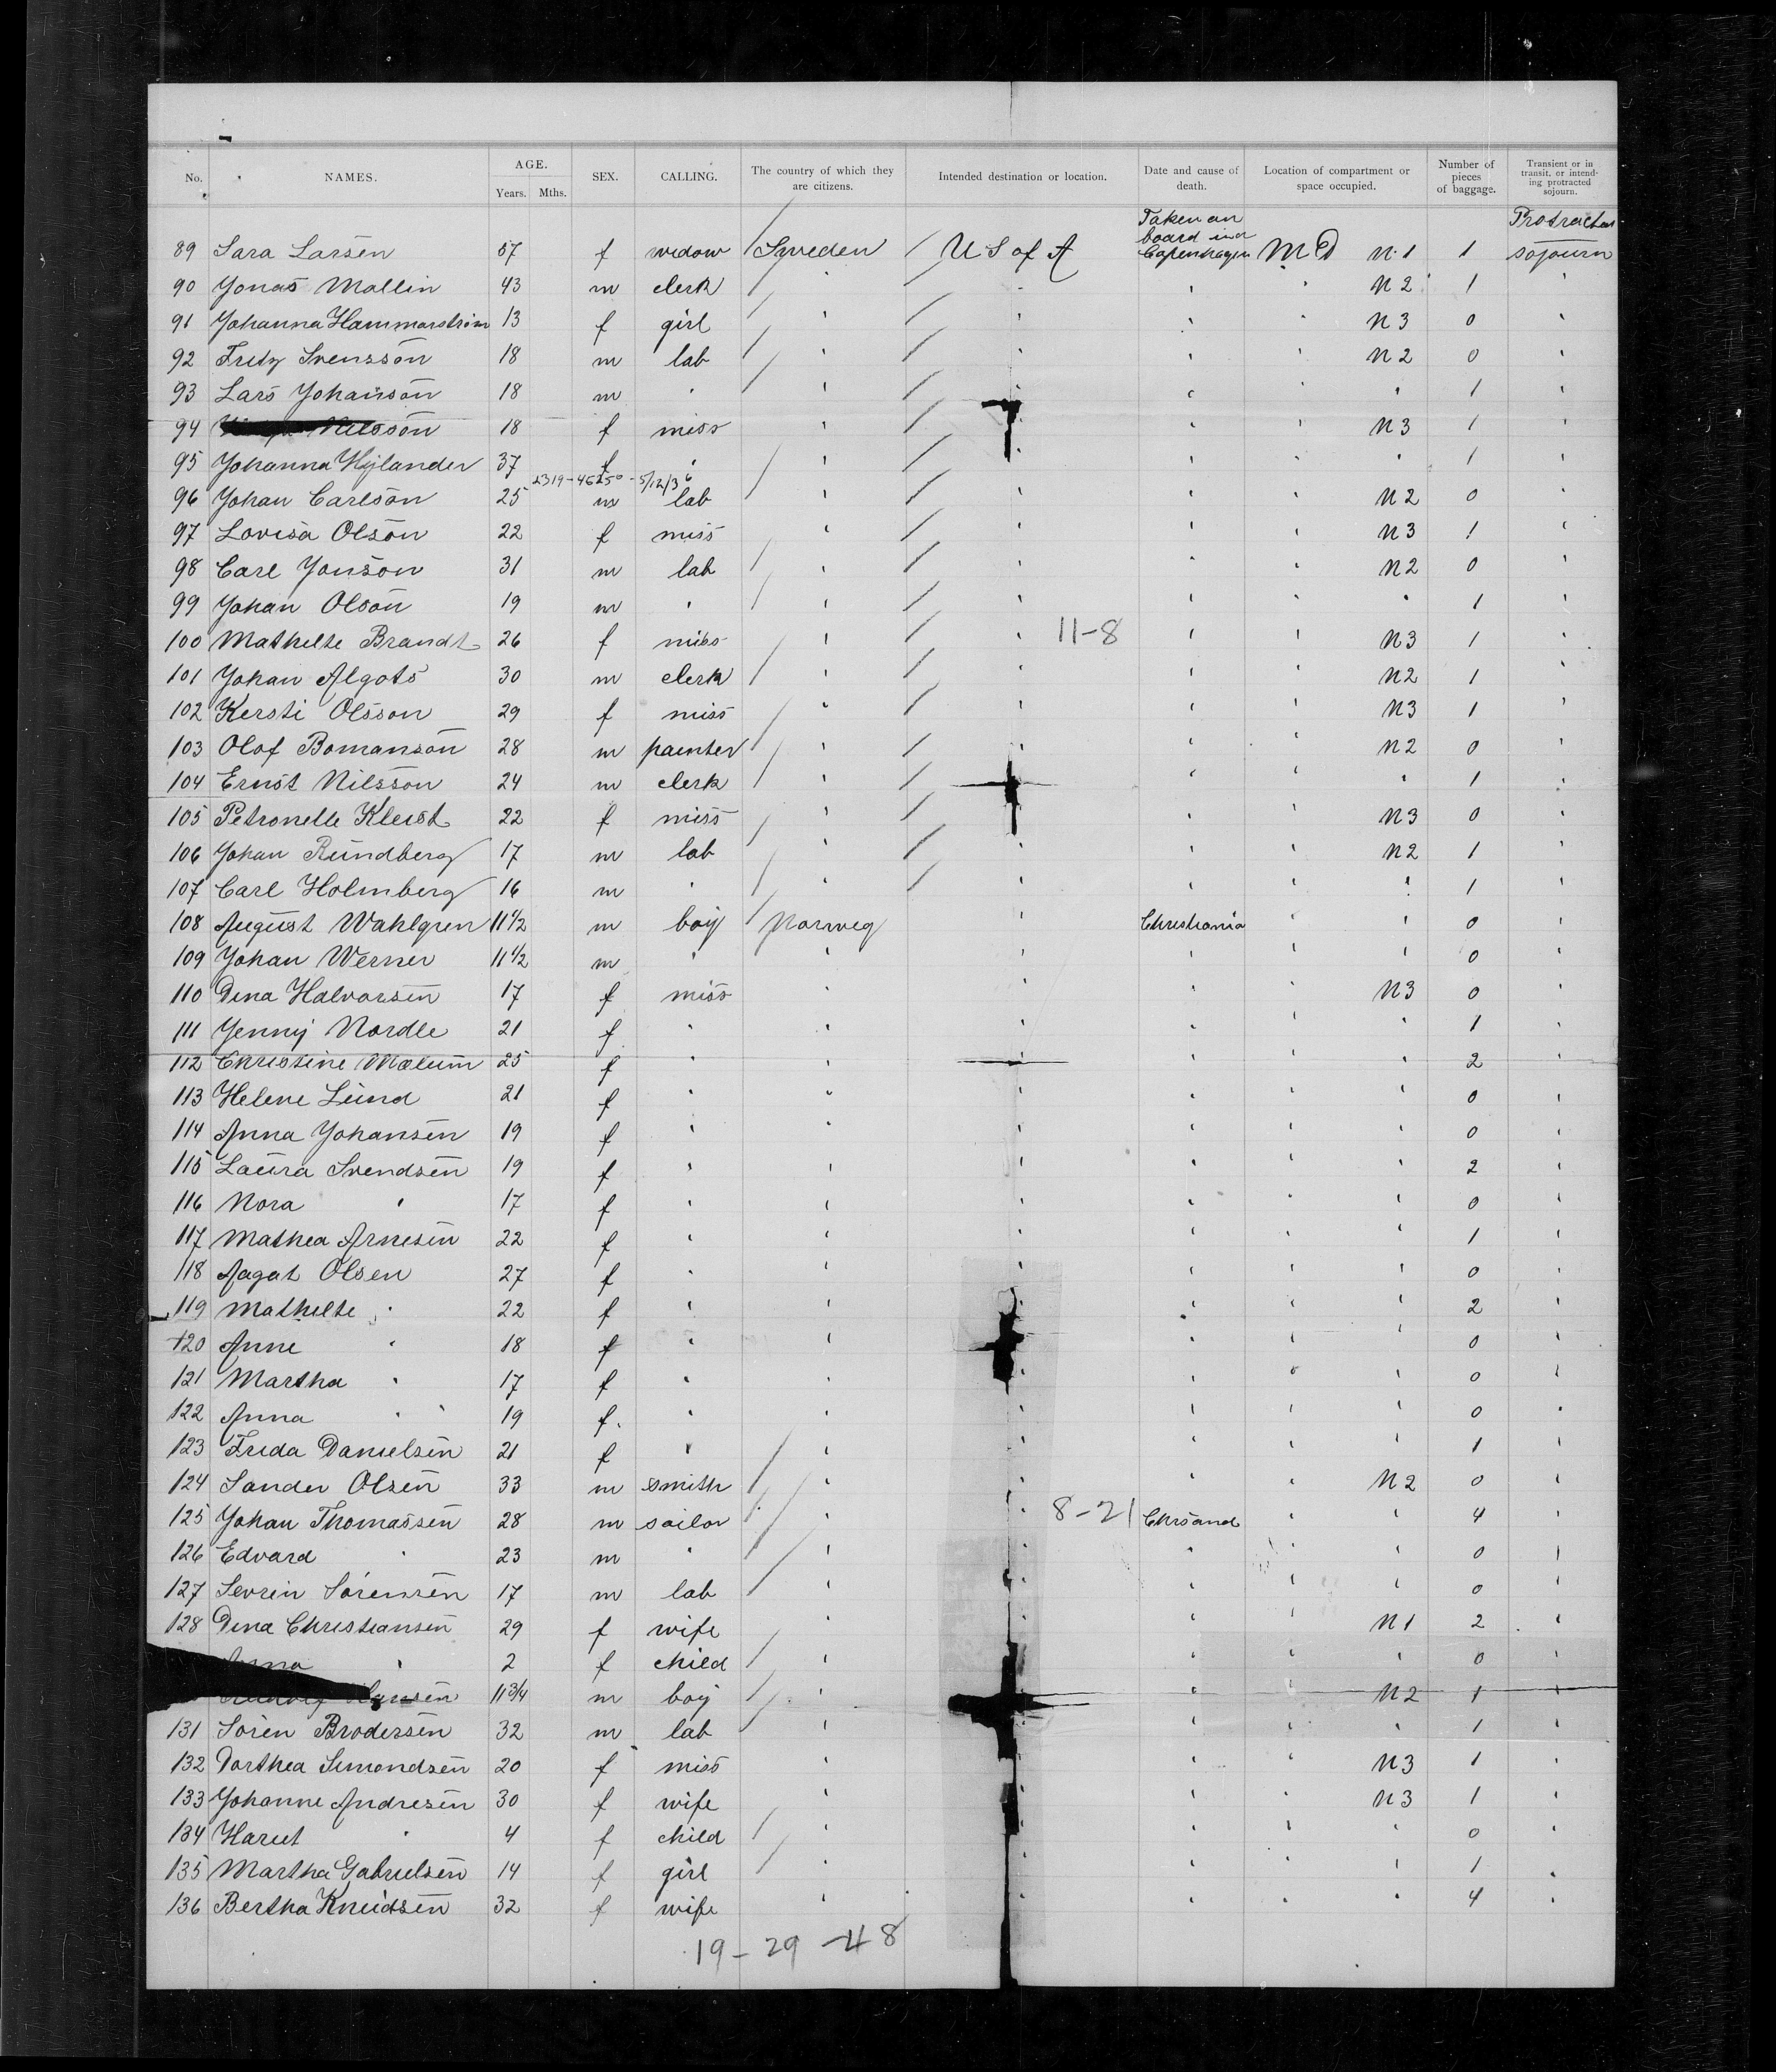 No. NAMES. AGE. Years. Mths. SEX. CALLING. The country of which they are citizens. Intended destination or location. Date and cause of death. Location of compartment or space occupied. Number of pieces of baggage. Transient or in transit, or intending protracted sojourn.
89 Sara Larsen 57 f widow Sweden U S of A Taken on board in Copenhagen M D N 1 1 Protracted sojourn
90 Yonas Mallin 43 m clerk " " " " N 2 1 "
91 Yohanna Hammarström 13 f girl " " " " N 3 0 "
92 Fritz Svensson 18 m lab " " " " N 2 0 "
93 Lars Yohanson 18 m " " " " " " 1 "
94 Nilsson 18 f miss " " " " N 3 1 "
95 Yohanna Hylander 37 f " " " " " " 1 "
2319-46250-5/12/36
96 Yohan Carlson 25 m lab " " " " N 2 0 "
97 Lovisa Olson 22 f miss " " " " N 3 1 "
98 Carl Yonson 31 m lab " " " " N 2 0 "
99 Yohan Olson 19 m " " " " " " 1 "
100 Mathilte Brandt 26 f miss " " 11-8 " " N 3 1 "
101 Yohan Algots 30 m clerk " " " " N 2 1 "
102 Kersti Olsson 29 f miss " " " " N 3 1 "
103 Olof Bomanson 28 m painter " " " " N 2 0 "
104 Ernst Nilsson 24 m clerk " " " " " 1 "
105 Petronelle Kleist 22 f miss " " " " N 3 0 "
106 Yohan Rundberg 17 m lab " " " " N 2 1 "
107 Carl Holmberg 16 m " " " " " " 1 "
108 August Wahlgren 11 1/2 m boy Norweg " Christiania " " 0 "
109 Yohan Werner 11 1/2 m " " " " " " 0 "
110 Dina Halvorsen 17 f miss " " " " N 3 0 "
111 Yenny Nordle 21 f " " " " " " 1 "
112 Christine Mælum 25 f " " " " " " 2 "
113 Helene Lund 21 f " " " " " " 0 "
114 Anna Yohansen 19 f " " " " " " 0 "
115 Laura Svendsen 19 f " " " " " " 2 "
116 Nora " 17 f " " " " " " 0 "
117 Mathea Arnesen 22 f " " " " " " 1 "
118 Aagat Olsen 27 f " " " " " " 0 "
119 Mathilte " 22 f " " " " " " 2 "
120 Anne " 18 f " " " " " " 0 "
121 Martha " 17 f " " " " " " 0 "
122 Anna " " 19 f " " " " " " 0 "
123 Frida Danielsen 21 f " " " " " " 1 "
124 Sander Olsen 33 m smith " " " " N 2 0 "
125 Yohan Thomassen 28 m sailor " " 8-21 Chrsand " " 4 "
126 Edvard " 23 m " " " " " " 0 "
127 Sevrin Sörensen 17 m lab " " " " " 0 "
128 Dina Christiansen 29 f wife " " " " N 1 2 "
Anna " 2 f child " " " " " 0 "
Rudolf Hansen 11 3/4 m boy " " " " N 2 1 "
131 Sören Brodersen 32 m lab " " " " " 1 "
132 Dorthea Simondsen 20 f miss " " " " N 3 1 "
133 Yohanne Andresen 30 f wife " " " " N 3 1 "
134 " 4 f child " " " " " 0 "
135 Martha Gabrielsen 14 f girl " " " " " 1 "
136 Bertha Knudsen 32 f wife " " " " " 4 "
19-29-48